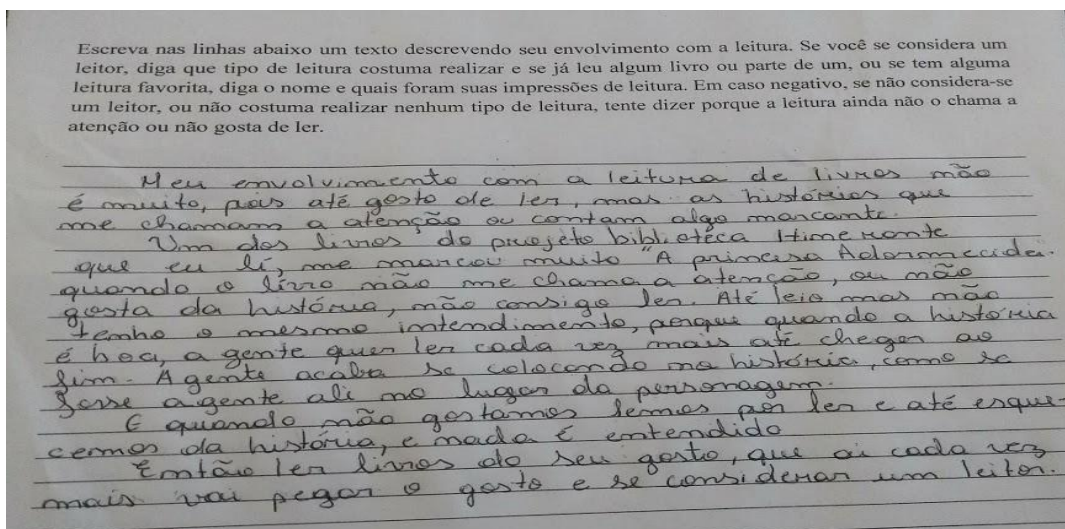 Escreva nas linhas abaixo um texto descrevendo seu envolvimento com a leitura. Se você se considera um
leitor, diga que tipo de leitura costuma realizar e se já leu algum livro ou parte de um, ou se tem alguma
leitura favorita, diga o nome e quais foram suas impressões de leitura. Em caso negativo, se não considera-se
um leitor, ou não costuma realizar nenhum tipo de leitura, tente dizer porque a leitura ainda não o chama a
atenção ou não gosta de ler.
Meu envolvimento com a leitura de livros não
é muito, pois até gosto de ler, mas as histórias que
me chamam a atenção ou contam algo marcante.
Um dos livros do projeto bibliotéca Itinerante
que eu li, me marcou muito "A princesa Adormecida.
quando o livro não me chama a atenção, ou não
gosta da história, não consigo ler. Até leio mas não
tenho o mesmo intendimento, porque quando a história
é boa, a gente quer ler cada vez mais até chegar ao
fim. A gente acaba se colocando na história, como se
fosse agente ali no lugar da personagem.
E quando não gostamos lemos por ler e até esque-
cemos da história, e nada é entendido
Então ler livros do seu gosto, que ai cada vez
mais vai pegar o gosto e se considerar um leitor.